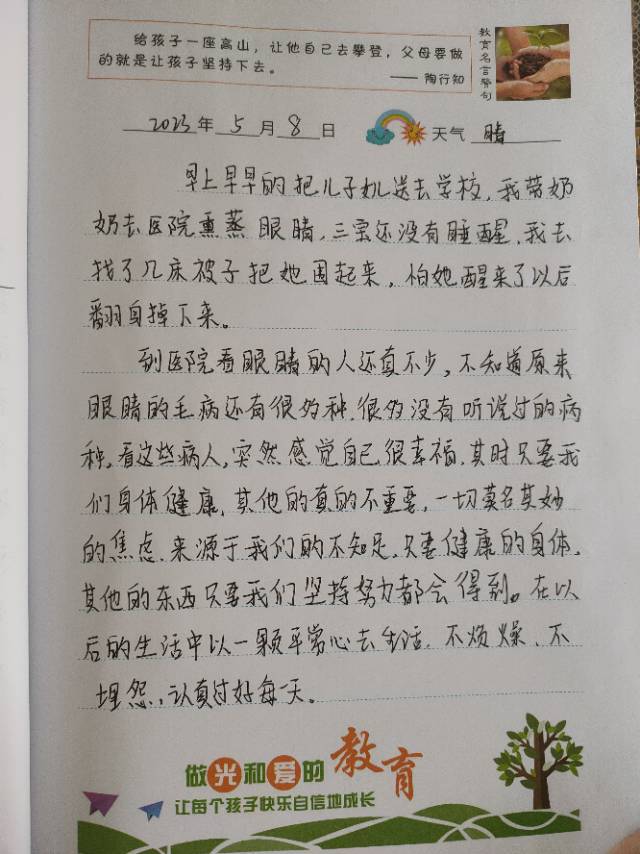 给孩子一座高山，让他自己去攀登，父母要做
的就是让孩子坚持下去。
—— 陶行知
教育名言警句
2023年 5月 8日 天气 晴
早上早早的把儿子们送去学校，我带奶
奶去医院熏蒸眼睛，三宝还没有睡醒，我去
找了几床被子把她围起来，怕她醒来了以后
翻身掉下来。
到医院看眼睛的人还真不少，不知道原来
眼睛的毛病还有很多种，很多没有听说过的病
种，看这些病人，突然感觉自己很幸福，其时只要我
们身体健康，其他的真的不重要，一切莫名其妙
的焦虑，来源于我们的不知足，只要健康的身体，
其他的东西只要我们坚持努力都会得到。在以
后的生活中以一颗平常心去生活，不烦燥、不
埋怨，认真过好每一天。
做光和爱的教育
让每个孩子快乐自信地成长